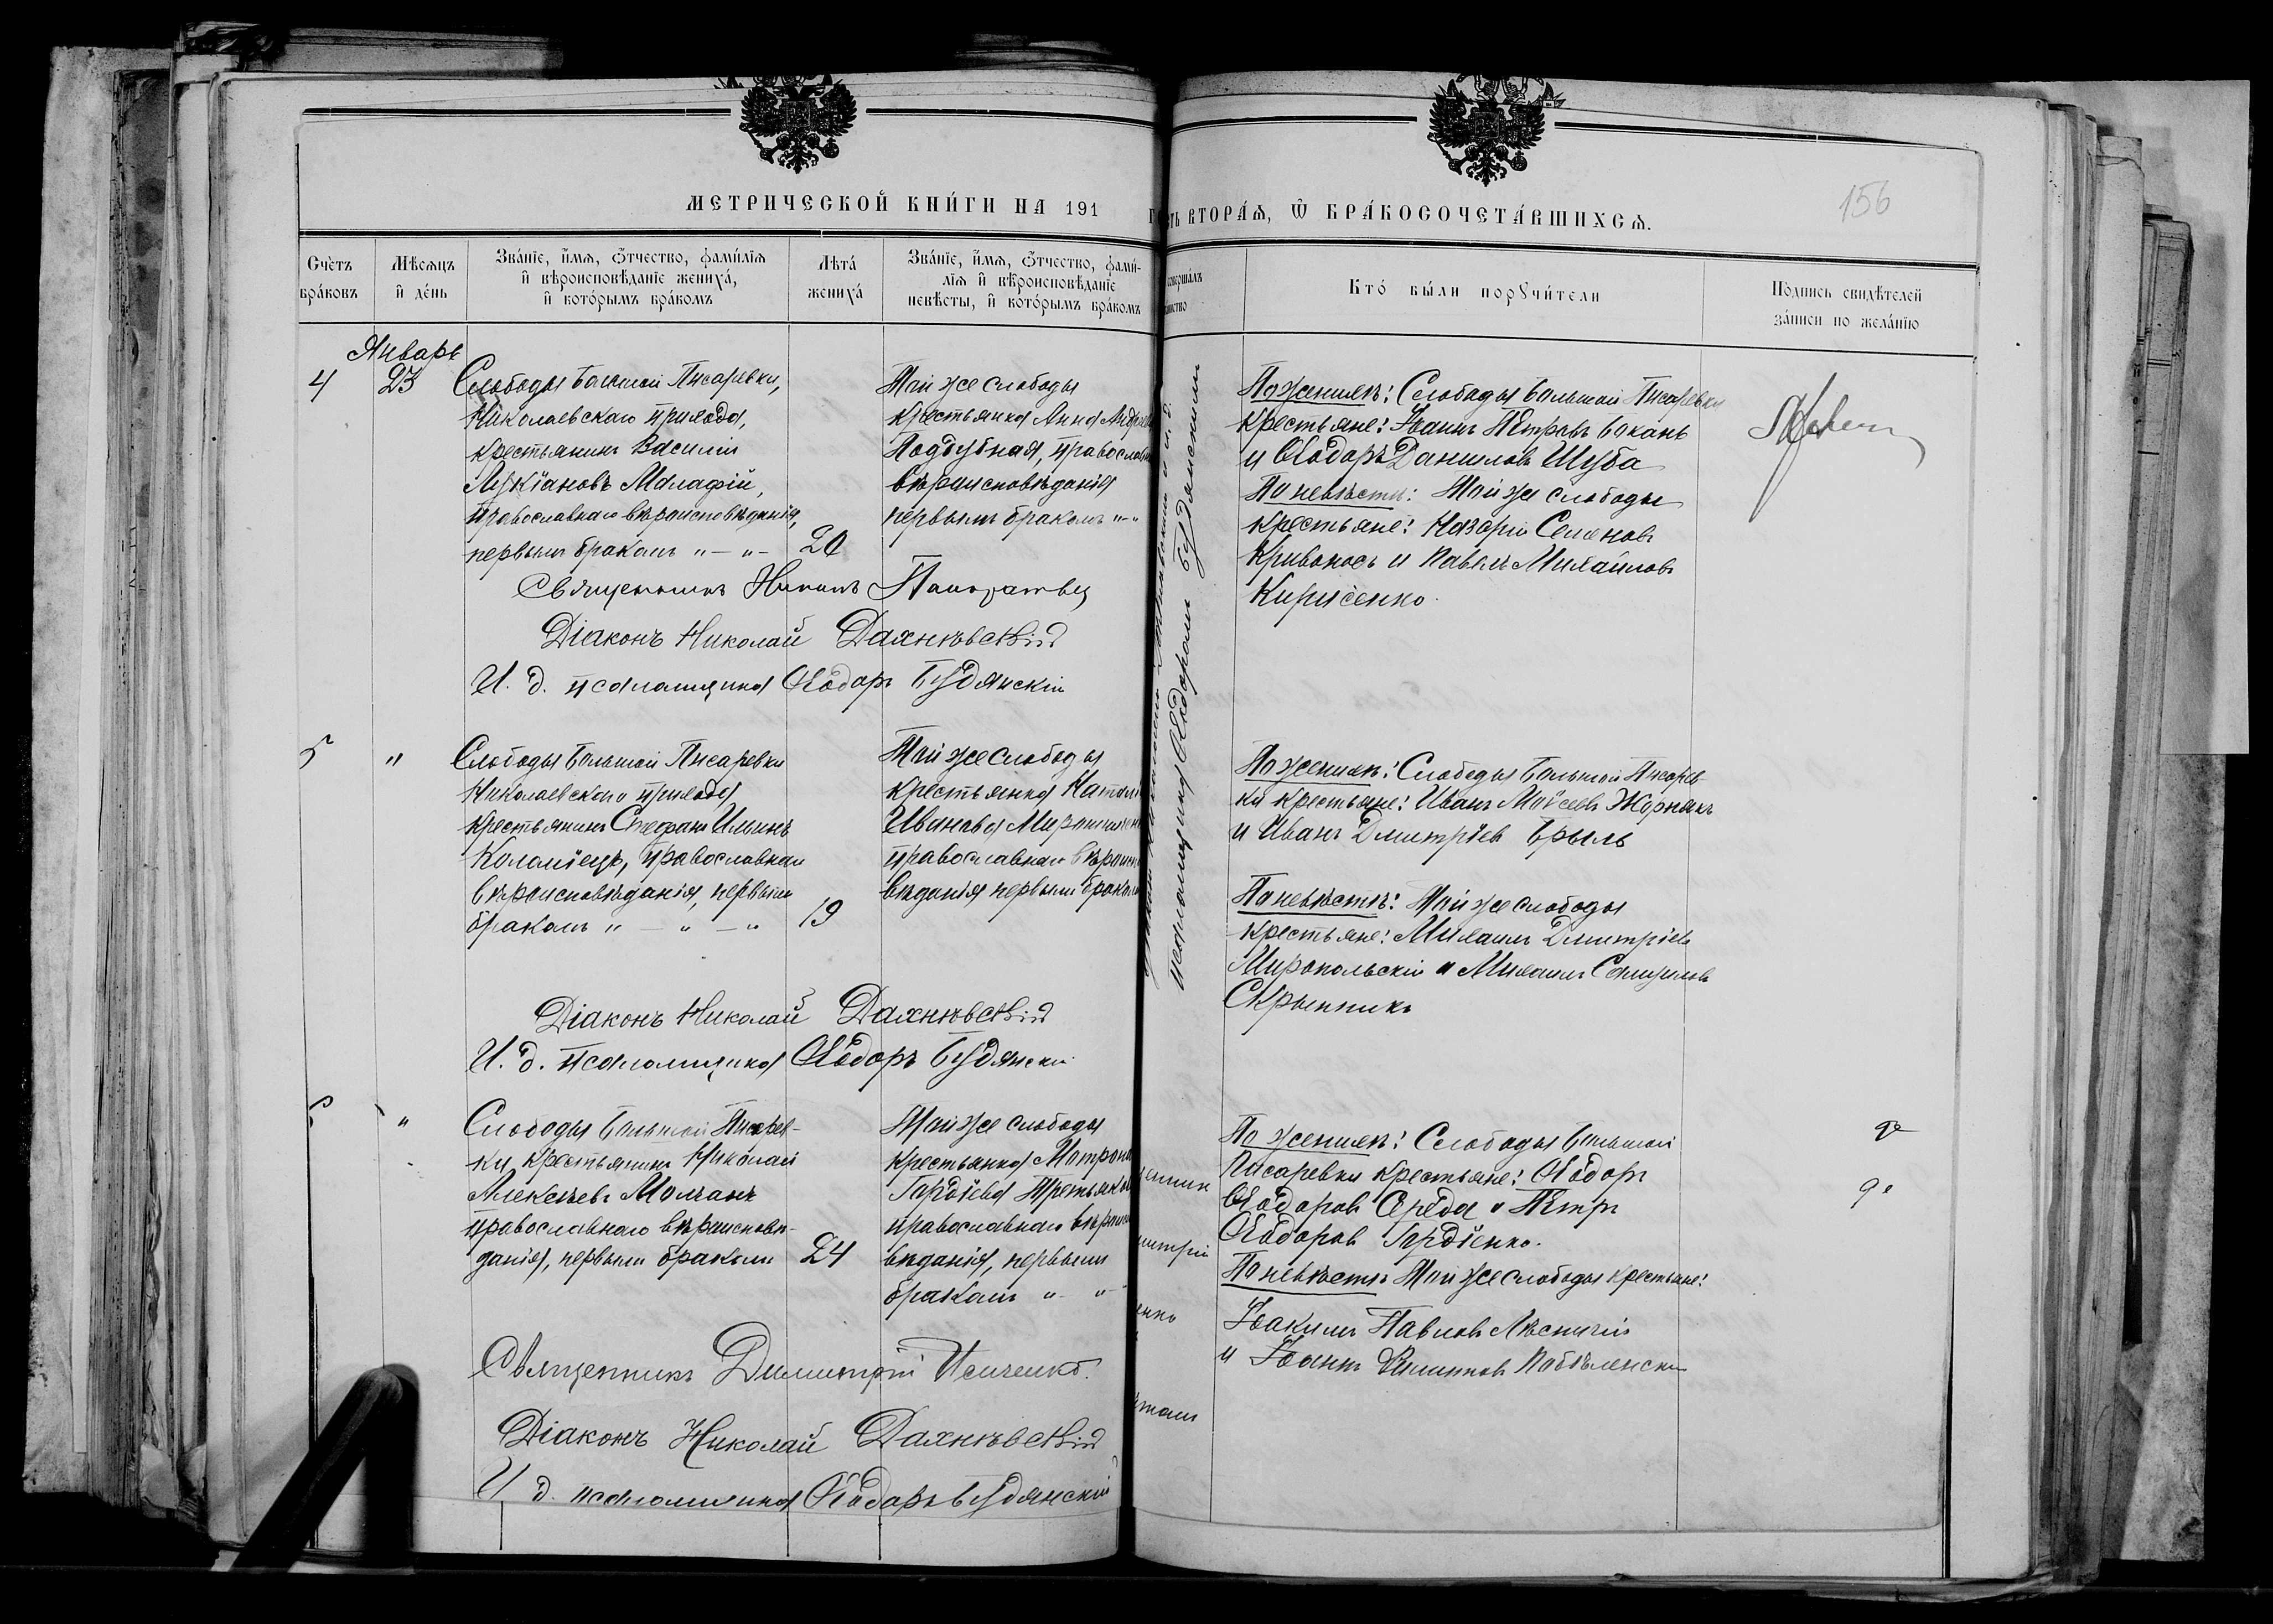 МЕТРИЧЕСКОЙ КНИ́ГИ НА 191
ВТОРА́Я, Ѡ БРА́КОСОЧЕТА́ВШИХСЯ.
156
Счѐтъ бра́ковъ
Мѣсяцъ и҆ де́нь
Зва́нїе, и҆́мя, ѻ҆́тчество, фами́лїя и҆ вѣроисповѣ́данїе жениха́, и҆ кото́рымъ бра́комъ
Лѣта́ жениха́
Зва́нїе, и҆́мя, ѻ҆́тчество, фами́-
лїя и҆ вѣроисповѣ́данїе
невѣ́сты, и҆ кото́рымъ бра́комъ
Кто́ бы́ли порꙋчи́тели
По́дпись свидѣ́телей
за́писи по жела́нїю
Январь
4 23
Слободы Большой Писаревки,
Николаевскаго прихода,
крестьянинъ Василій
Лукіановъ Малафій,
православнаго вѣроисповѣданія,
первымъ бракомъ "—"—
20
Той же слободы
крестьянка Анна Андрее
Поддубная, православн
вѣроисповѣданія
первымъ бракомъ "–"
По женихѣ: Слободы Большой Писаревки
крестьяне: Іоаннъ Петровъ Бокань
и Ѳеодоръ Даниловъ Шуба
По невѣстѣ: Той же слободы
крестьяне: Назарій Семеновъ
Кривоносъ и Павелъ Михайловъ
Кириченко.
Священникъ
Діаконъ Николай Дахнѣвскій
И. д. псаломщика Ѳеодоръ Будянскій
псаломщика Ѳеодоромъ Будянскимъ
5 "
Слободы Большой Писаревки
Николаевскаго прихода
крестьянинъ Стефанъ Ильинъ
Коломіецъ, православнаго
вѣроисповѣданія, первымъ
бракомъ " — " — "
19
Той же слободы
крестьянка Натал
Иванова
православнаго вѣроиспо
вѣданія первымъ браком
По женихѣ: Слободы Большой Писарев-
ки крестьяне: Иванъ Моѵсеевъ Жорнякъ
и Иванъ Дмитріевъ Брыль
По невѣстѣ: Той же слободы
крестьяне: Михаилъ Дмитріевъ
Миропольскій и Михаилъ Самуиловъ
Скрынникъ
Діаконъ Николай Дахнѣвскій
И. д. псаломщика Ѳеодоръ Будянскій
"
Слободы Большой Писарев-
ки крестьянинъ Николай
Алексѣевъ Молчанъ
православнаго вѣроисповѣ-
данія, первымъ бракомъ
24
Той же слободы
крестьянка Матрона
Гордіева Третьяков
православнаго вѣроиспо
вѣданія, первымъ
бракомъ " "
По женихѣ: Слободы Большой
Писаревки крестьяне: Ѳеодоръ
Ѳеодоровъ Середа и Петръ
Ѳеодоровъ Гордіенко.
По невѣстѣ Той же слободы крестьяне:
Іоакимъ Павловъ Лѣсничій
и Іоаннъ
Священникъ Димитрій
Діаконъ Николай Дахнѣвскій
И. д. псаломщика Ѳеодоръ Будянскій